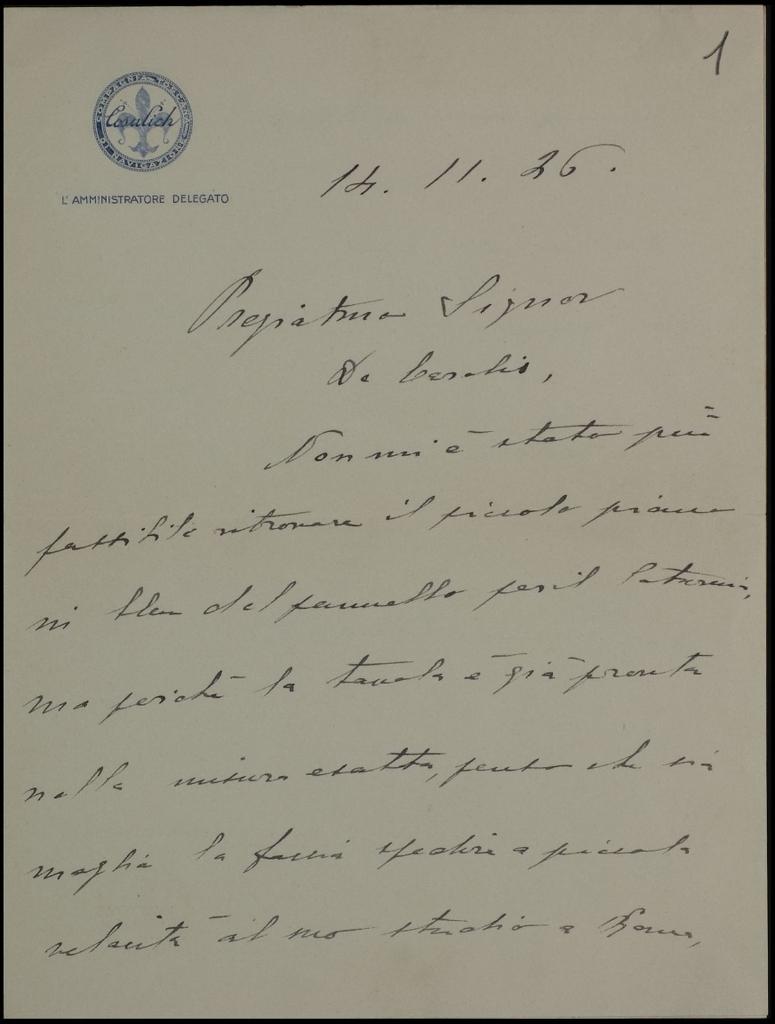 1
COMPAGNIA TOSCANA
Cosulich
DI NAVIGAZIONE
L'AMMINISTRATORE DELEGATO
14. 11. 26.
Pregiatmo Signor
De Carolis,
Non mi è stato più
possibile ritrovare il piccolo piano
in bleu del pannello per il
ma poiché la tavola è già pronta
nella misura esatta, penso che sia
meglio la faccia spedire a piccola
velocità al suo studio a Roma,